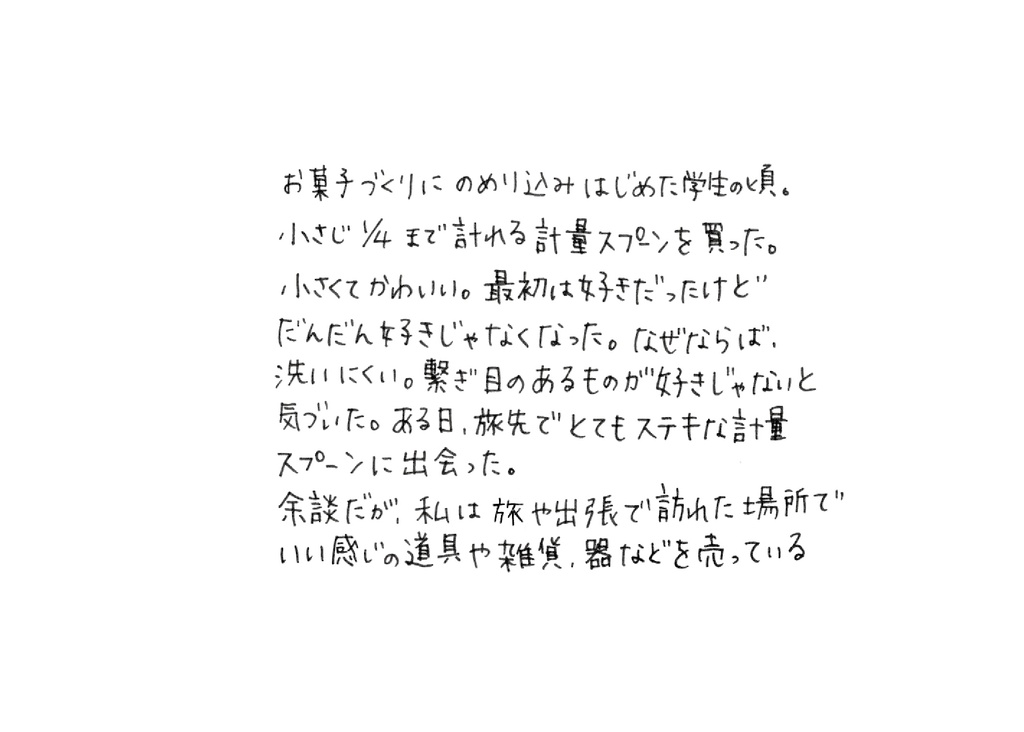 お菓子づくりにのめり込みはじめた学生の頃。
小さじ1/4まで計れる計量スプーンを買った。
小さくてかわいい。最初は好きだったけど
だんだん好きじゃなくなった。なぜならば、
洗いにくい。繋ぎ目のあるものが好きじゃないと
気づいた。ある日、旅先でとてもステキな計量
スプーンに出会った。
余談だが、私は旅や出張で訪れた場所で
いい感じの道具や雑貨、器などを売っている